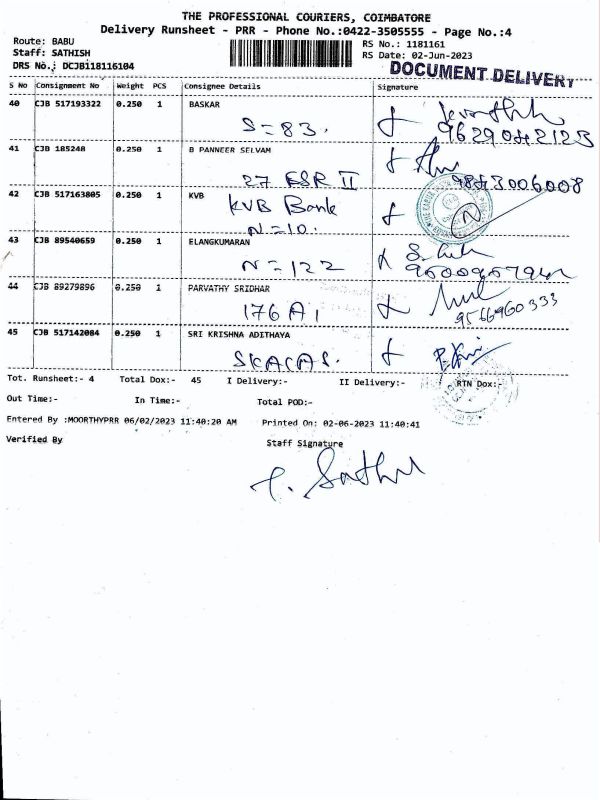 THE PROFESSIONAL COURIERS, COIMBATORE
Delivery Runsheet - PRR - Phone No.:0422-3505555 - Page No.:4
Route: BABU
RS No.: 1181161
Staff: SATHISH
RS Date: 02-Jun-2023
DRS No.: DCJB118116104
DOCUMENT DELIVERY
S No Consignment No Weight PCS Consignee Details Signature
40 CJB 517193322 0.250 1 BASKAR
S=83. 9629042123
41 CJB 185248 0.250 1 B PANNEER SELVAM
27 ESR II 9843006008
42 CJB 517163805 0.250 1 KVB
KVB Bank
N=10.
43 CJB 89540659 0.250 1 ELANGKUMARAN
N=122
44 CJB 89279896 0.250 1 PARVATHY SRIDHAR
176 A1 9566960333
45 CJB 517142084 0.250 1 SRI KRISHNA ADITHAYA
SKACAS.
Tot. Runsheet:- 4 Total Dox:- 45 I Delivery:- II Delivery:- RTN Dox:-
Out Time:- In Time:- Total POD:-
Entered By :MOORTHYPRR 06/02/2023 11:40:20 AM Printed On: 02-06-2023 11:40:41
Verified By Staff Signature